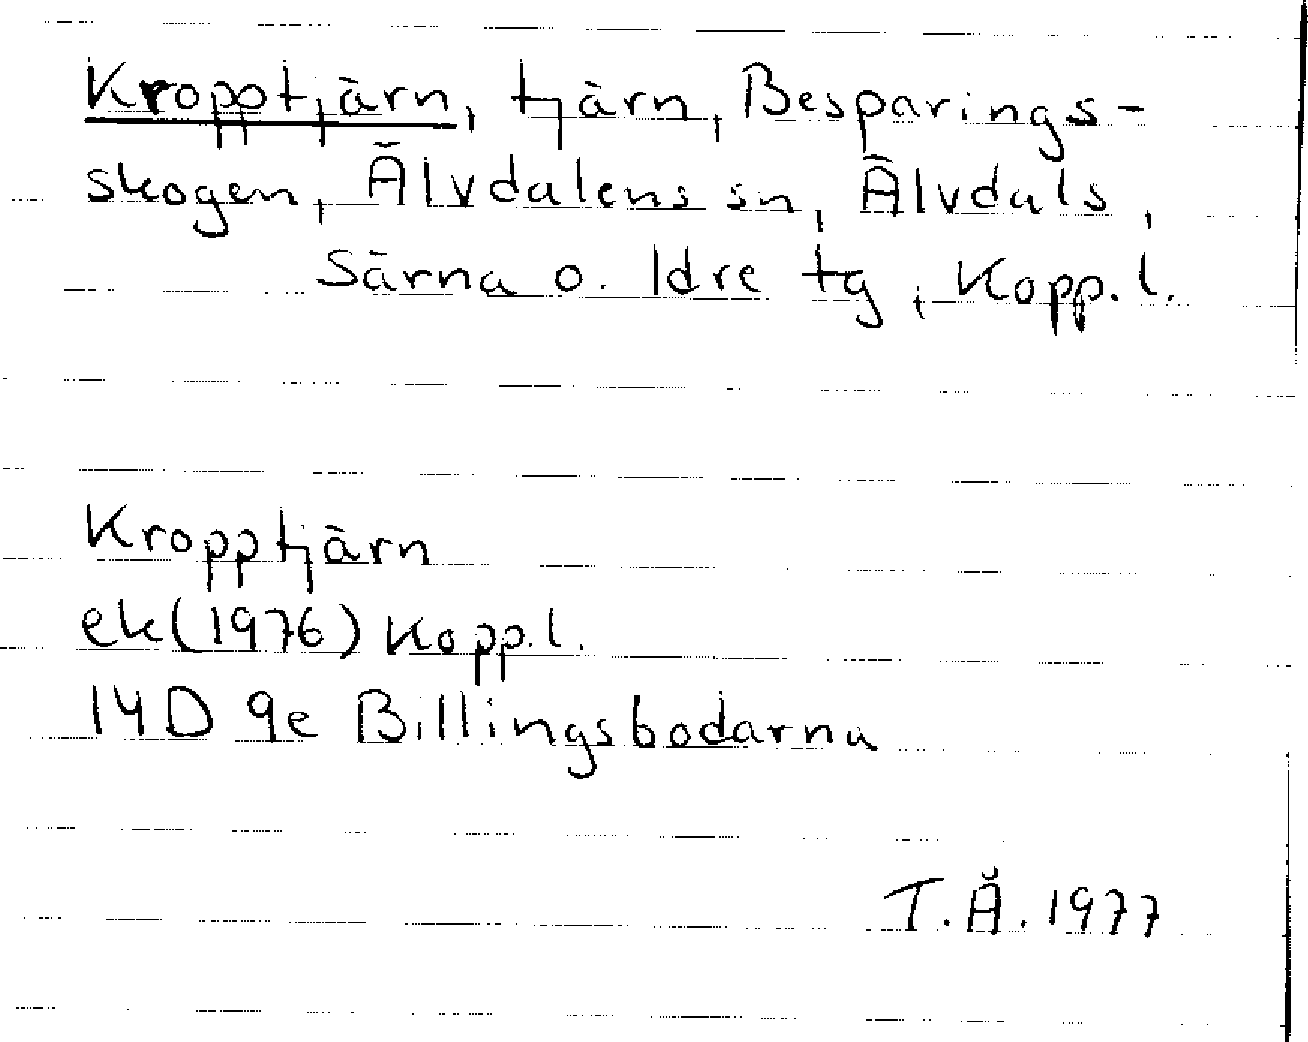 Kropptjärn, tjärn, Besparings-
skogen, Älvdalens sn, Älvdals,
Särna o. Idre tg, Kopp.l.
Kropptjärn
ek(1976) Kopp.l.
14D 9e Billingsbodarna
T.Å.1977